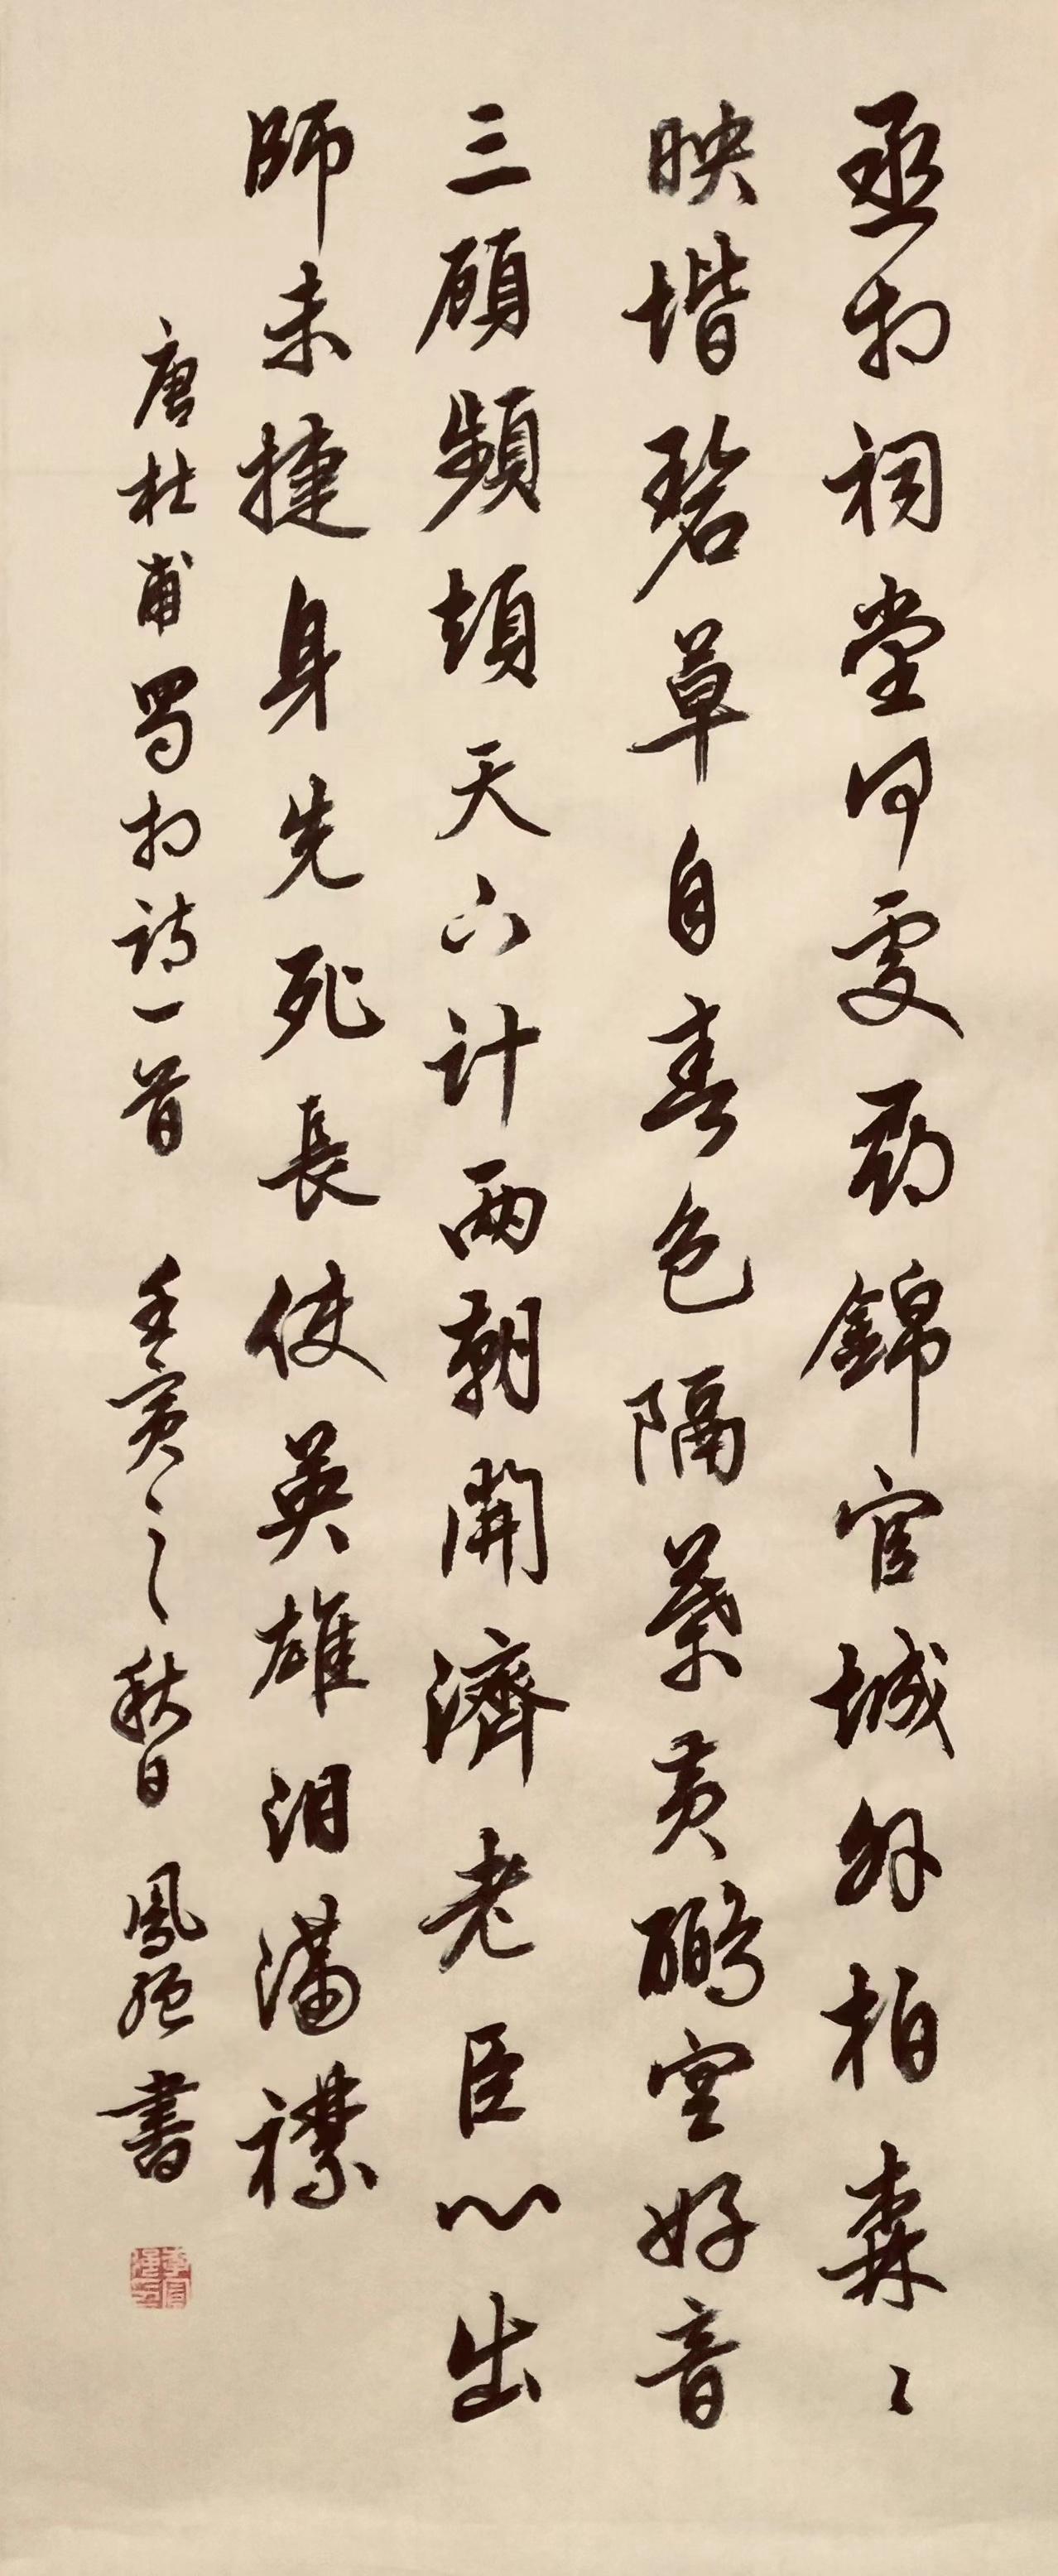 丞相祠堂何處尋錦官城外柏森〻
映堦碧草自春色隔葉黃鸝空好音
三顧頻頻天下計兩朝開濟老臣心出
師未捷身先死長使英雄淚滿襟
唐杜甫蜀相詩一首 壬寅之秋日 鳳強書